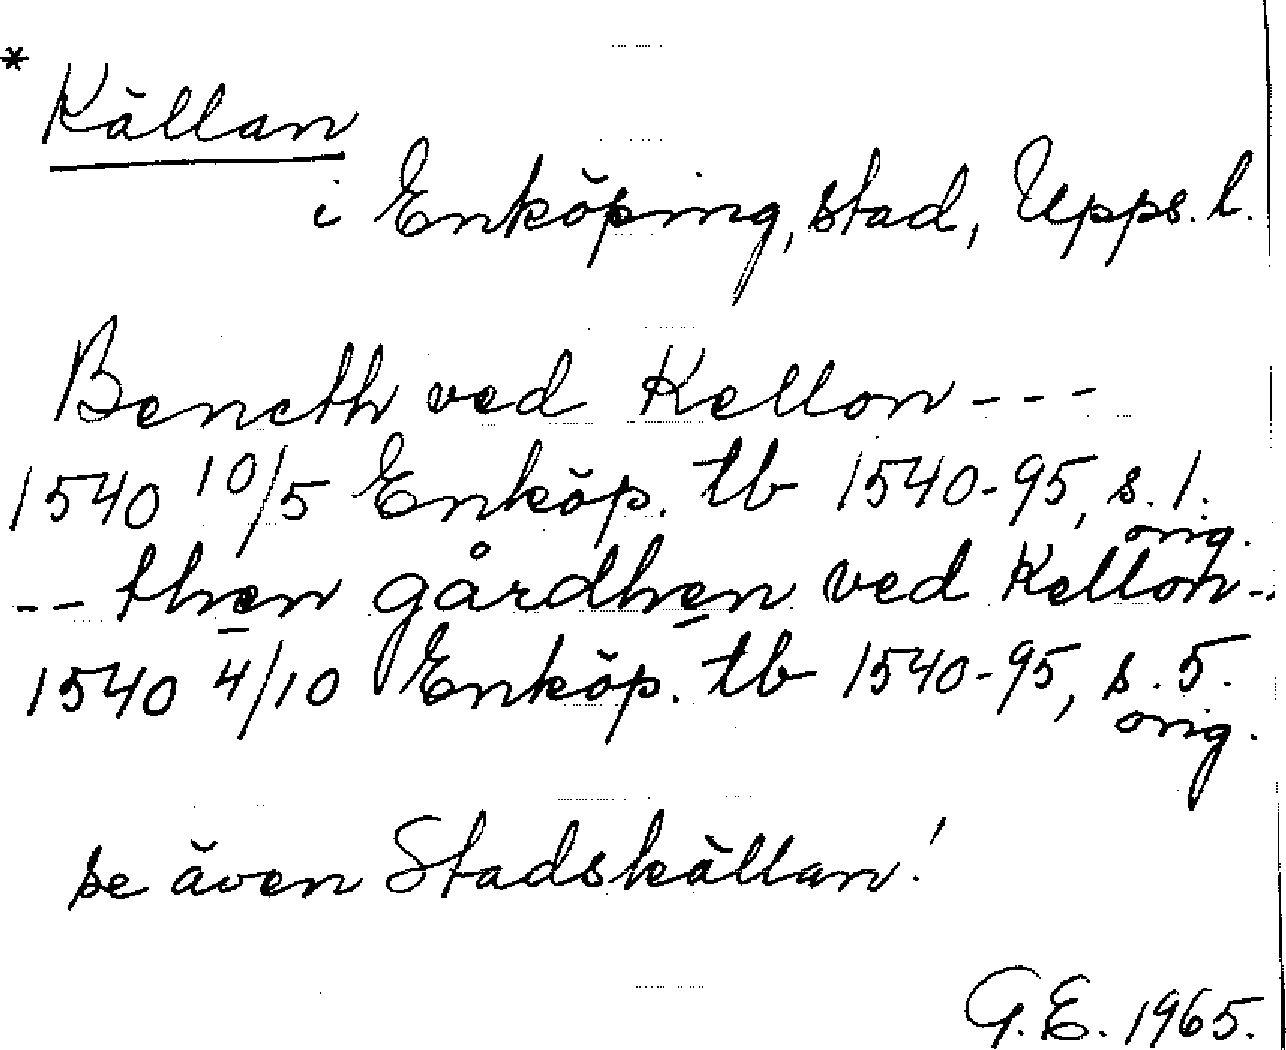 * Källan
i Enköping, stad, Upps. l.
Beneth ved Kellon - - -
1540 10/5 Enköp. tb 1540-95, s. 1.
orig.
-- then gårdhen ved Kellon --
1540 4/10 Enköp. tb 1540-95, s. 5.
orig.
se även Stadskällan!
G.E. 1965.